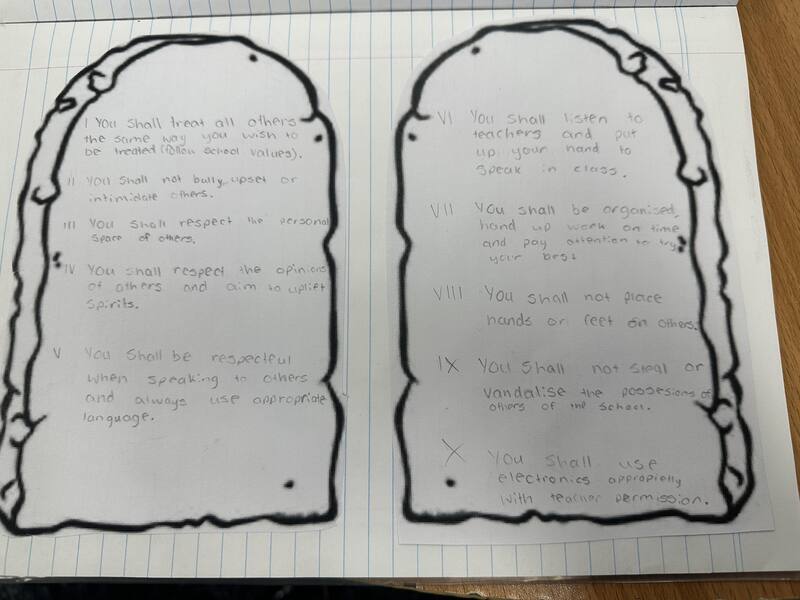 I You shall treat all others
the same way you wish to
be treated (follow school values).
II You shall not bully, upset or
intimidate others.
III You shall respect the personal
space of others.
IV You shall respect the opinions
of others and aim to uplift
spirits.
V You shall be respectful
when speaking to others
and always use appropriate
language.
VI You shall listen to
teachers and put
up your hand to
speak in class.
VII You shall be organised,
hand up work on time
and pay attention to try
your best
VIII You shall not place
hands or feet on others.
IX You shall not steal or
vandalise the possesions of
others of the school.
X You shall use
electronics appropietly
with teacher permission.